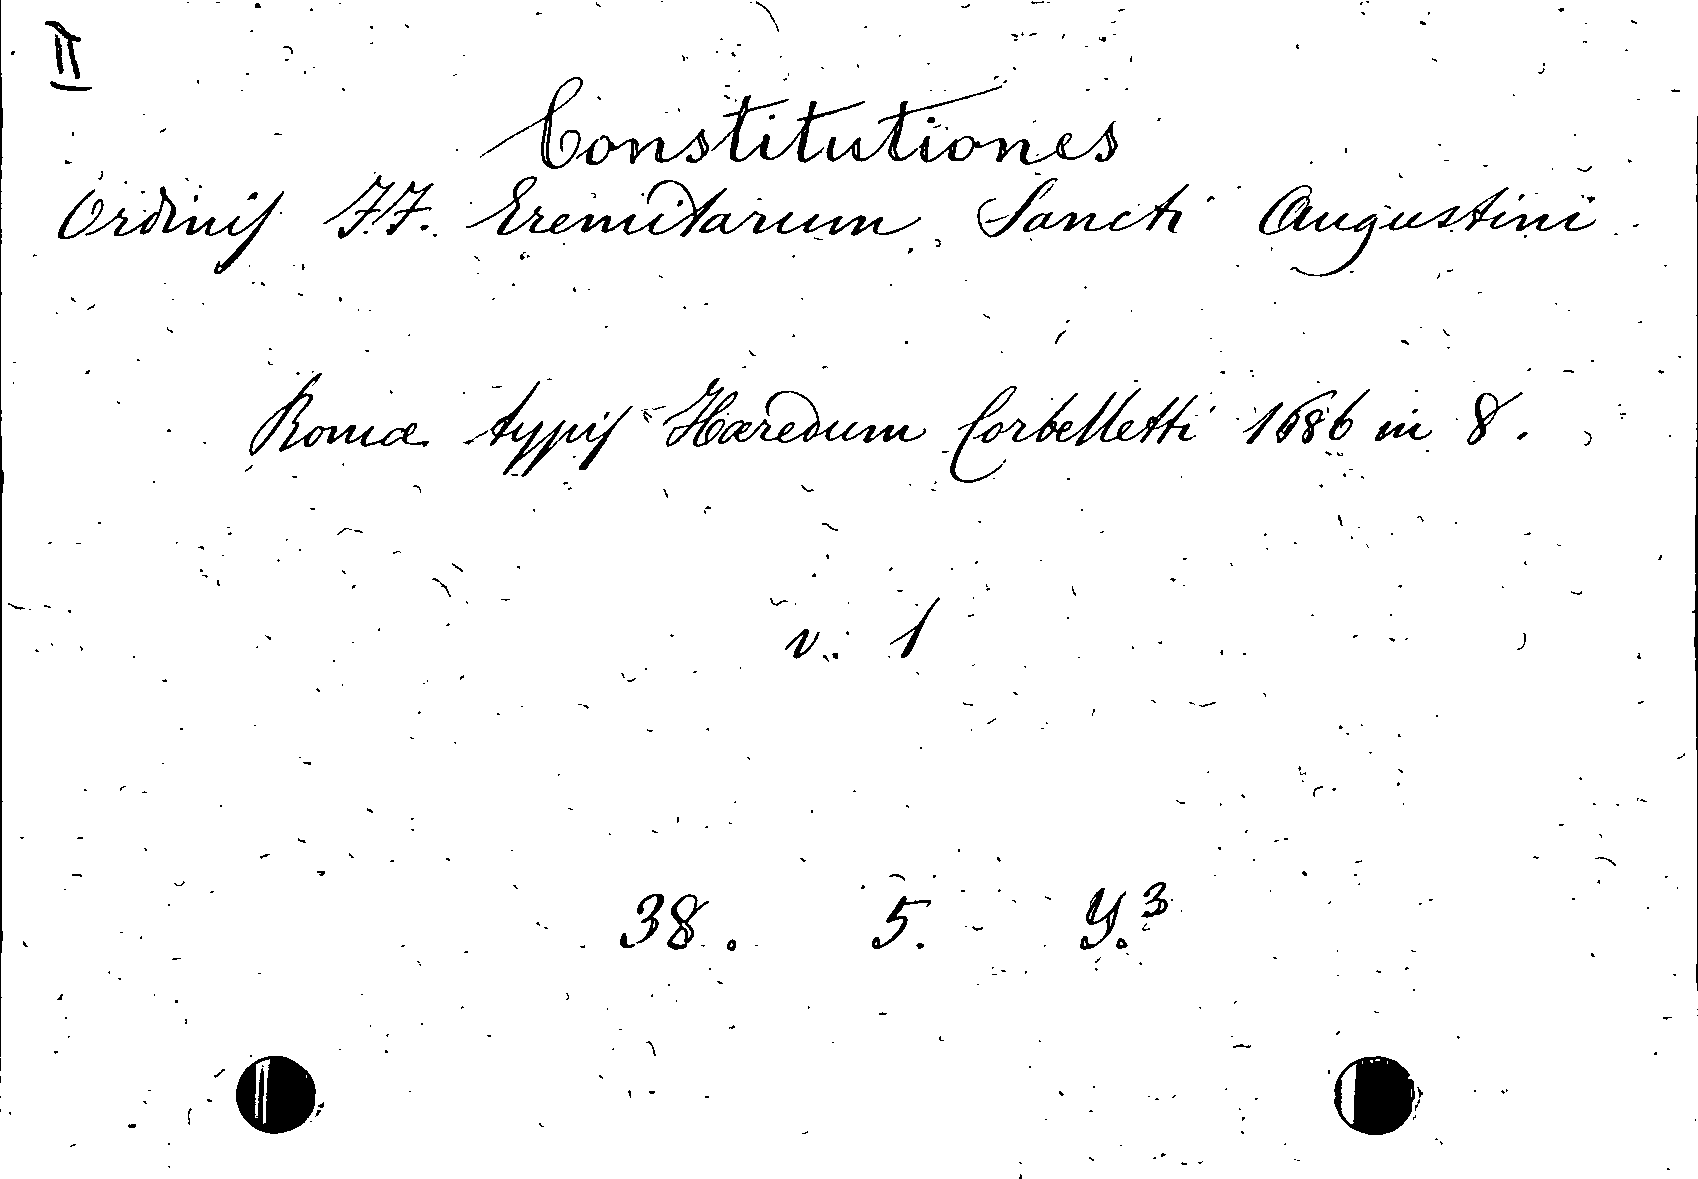 II
Constitutiones
Ordinis FF. Eremitarum Sancti Augustini
Romæ typis Hæredum Corbelletti 1686 in 8.
v. 1
38. 5. Y.³